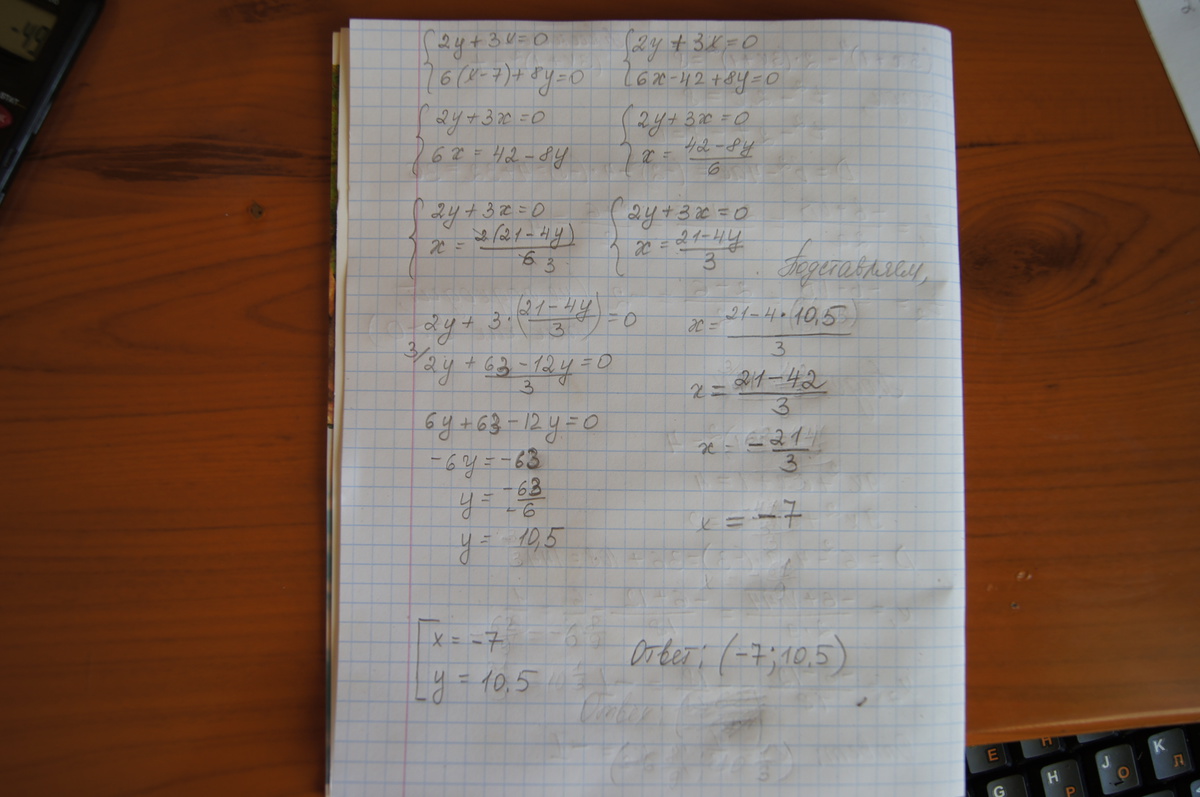 2y + 3x = 0
6(x-7) + 8y = 0
2y + 3x = 0
6x - 42 + 8y = 0
2y + 3x = 0
6x = 42 - 8y
2y + 3x = 0
x = 42 - 8y / 6
2y + 3x = 0
x = 2(21 - 4y) / 6 3
2y + 3x = 0
x = 21 - 4y / 3
2y + 3·(21 - 4y / 3) = 0
3/ 2y + 63 - 12y / 3 = 0
6y + 63 - 12y = 0
-6y = -63
y = -63 / -6
y = 10,5
Подставляем,
x = 21 - 4·(10,5) / 3
x = 21 - 42 / 3
x = - 21 / 3
x = -7
x = -7
y = 10,5
Ответ: (-7; 10,5)
E
G
H
P
J
О
К
Л